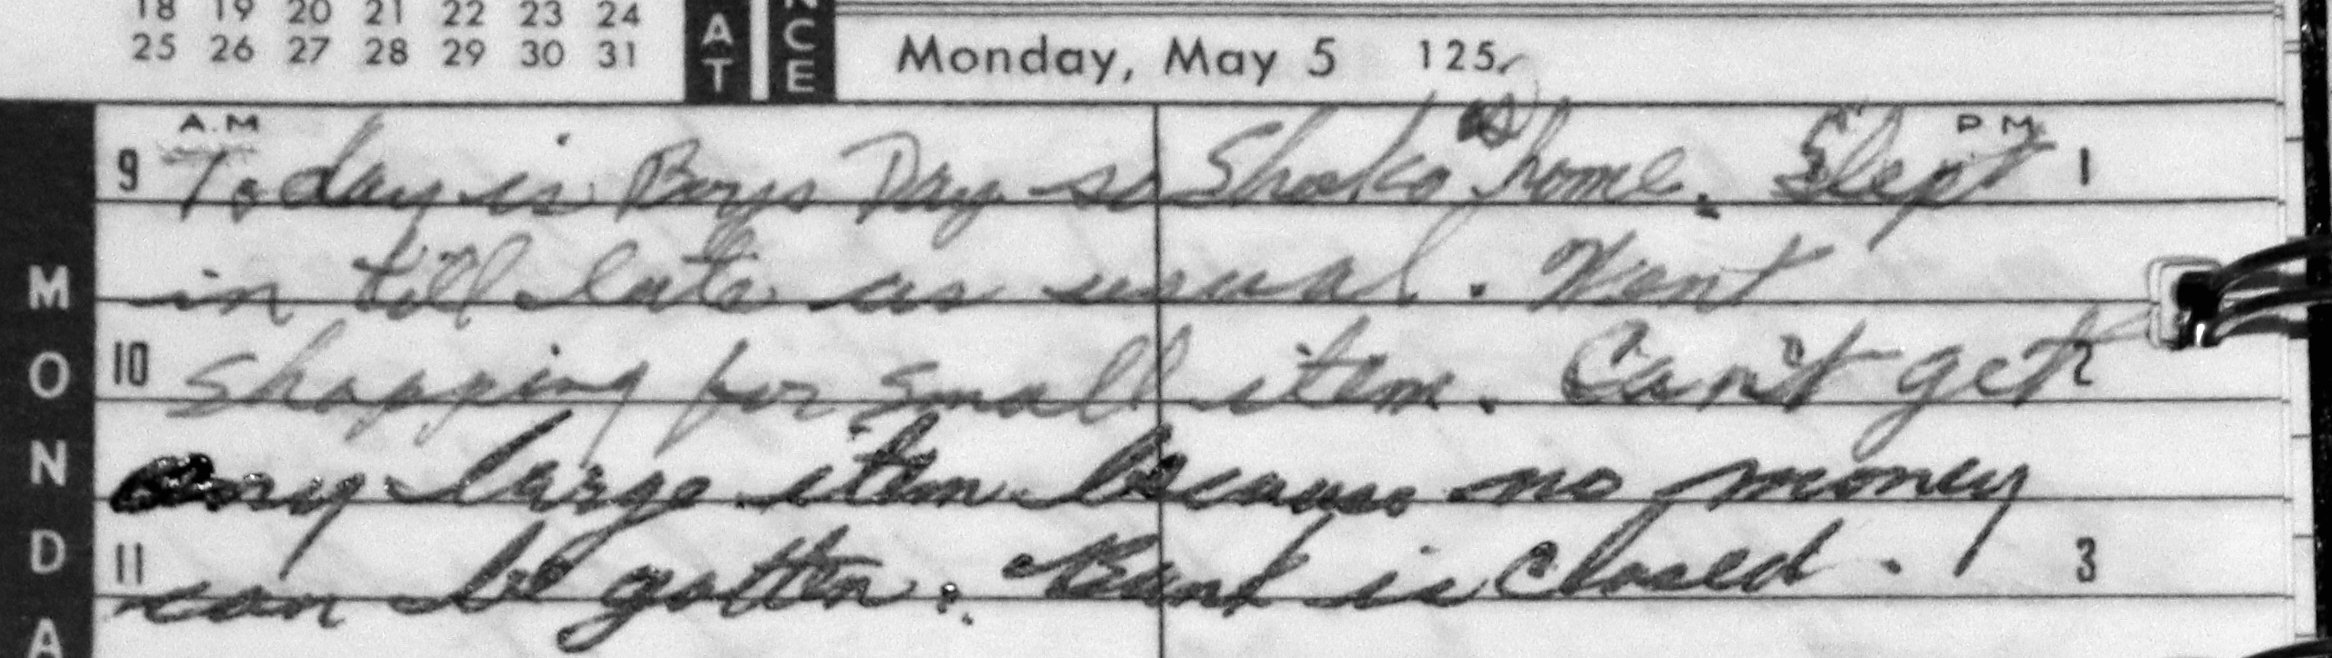 18 19 20 21 22 23 24
25 26 27 28 29 30 31
AT
NCE
Monday, May 5 125
A.M
PM
9 Today is Boys Day so Shoko is home. Slept 1
in till late as usual. Went
10 shopping for small item. Can't get 2
any large item because no money
11 can be gotten. Bank is closed. 3
MONDA